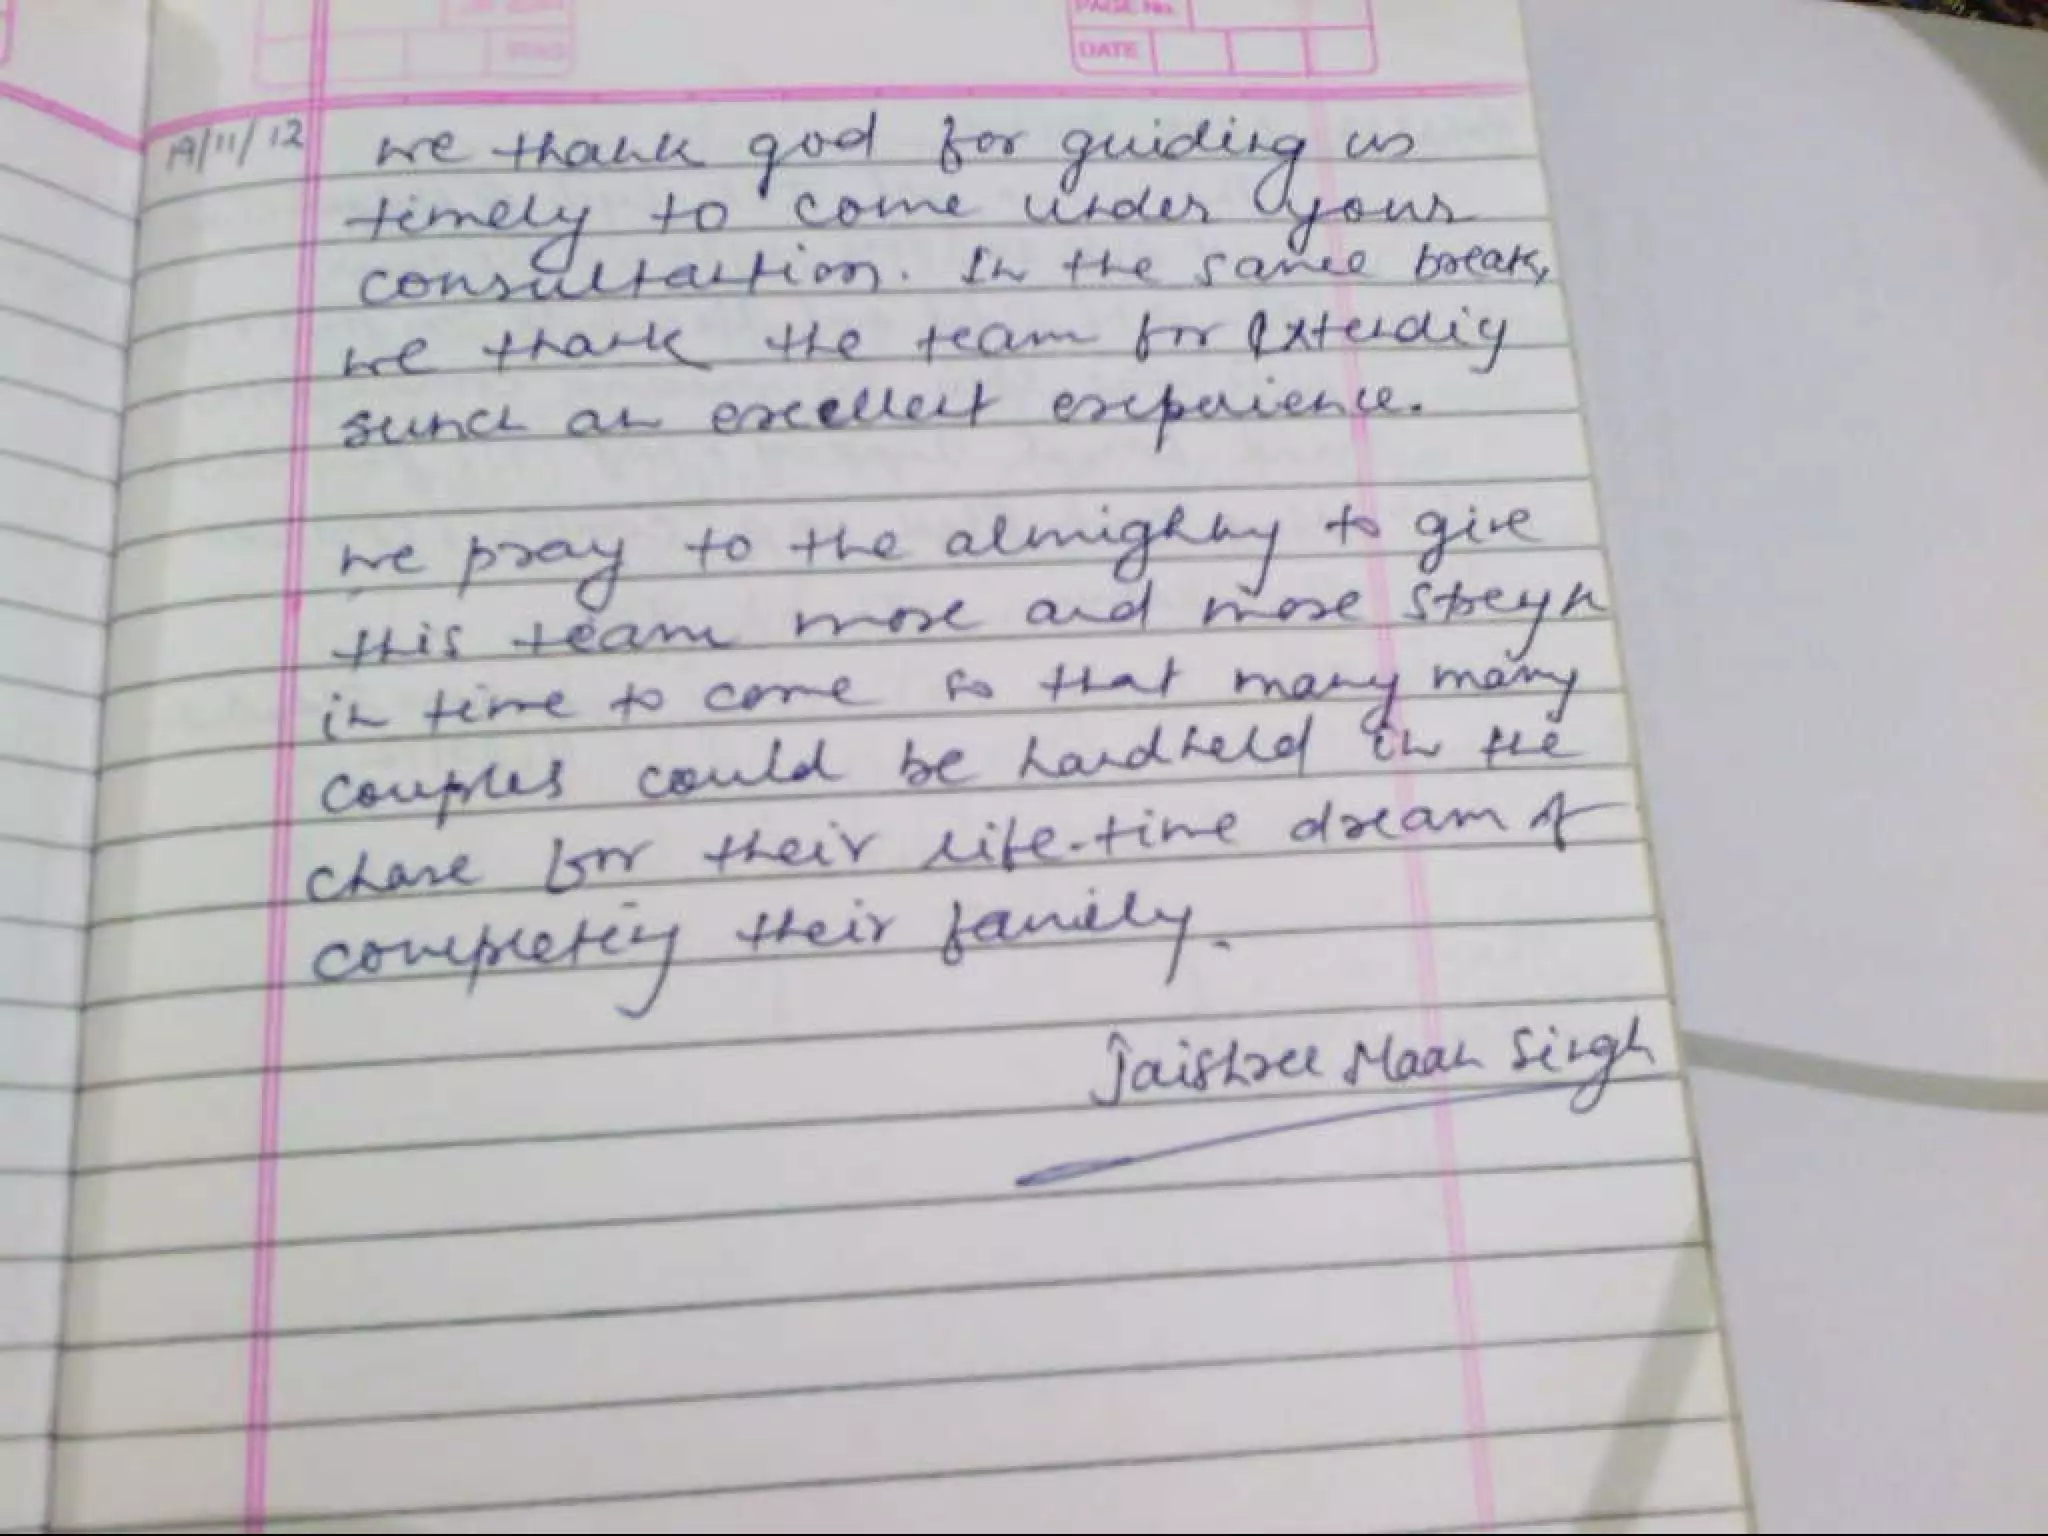 PAGE No.
DATE
19/11/12
we thank god for guiding us
timely to come under your
consultation. In the same break,
we thank the team for extending
such an excellent experience.
we pray to the almighty to give
this team more and more strength
in time to come so that many many
couples could be handheld in the
chase for their life-time dream of
completing their family.
Jaishree Maan Singh